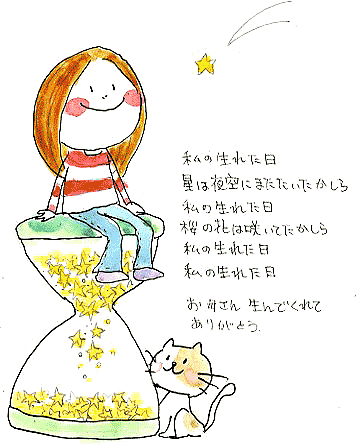 私の生れた日
星は夜空にまたたいたかしら
私の生れた日
桜の花は咲いてたかしら
私の生れた日
私の生れた日
お母さん 生んでくれて
ありがとう。